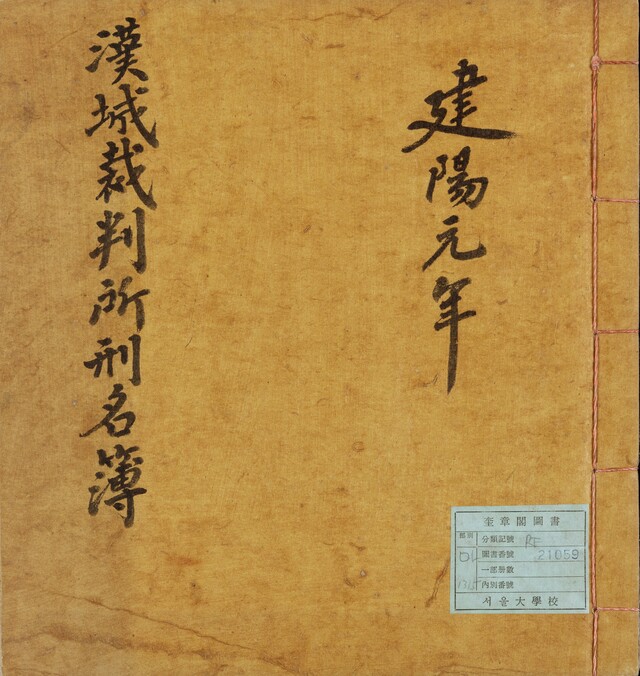 建陽元年
漢城裁判所刑名簿
奎章閣圖書
分類記號
圖書番號 21059
一部冊數
內別番號
서울大學校